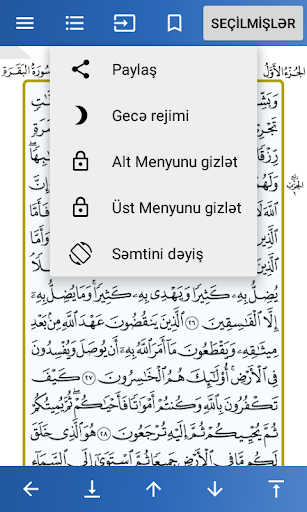 SEÇİLMİŞLƏR
سُورَةُ البَقَرَةِ
الجُزءُ الأَوَّلُ
Paylaş
Gecə rejimi
Alt Menyunu gizlət
Üst Menyunu gizlət
Səmtini dəyiş
يُضِلُّ بِهِۦ كَثِيرًا وَيَهْدِى بِهِۦ كَثِيرًا وَمَا يُضِلُّ بِهِۦٓ
إِلَّا ٱلْفَٰسِقِينَ ٢٦ ٱلَّذِينَ يَنقُضُونَ عَهْدَ ٱللَّهِ مِنۢ بَعْدِ
مِيثَٰقِهِۦ وَيَقْطَعُونَ مَآ أَمَرَ ٱللَّهُ بِهِۦٓ أَن يُوصَلَ وَيُفْسِدُونَ
فِى ٱلْأَرْضِ أُو۟لَٰٓئِكَ هُمُ ٱلْخَٰسِرُونَ ٢٧ كَيْفَ
تَكْفُرُونَ بِٱللَّهِ وَكُنتُمْ أَمْوَٰتًا فَأَحْيَٰكُمْ ثُمَّ يُمِيتُكُمْ
ثُمَّ يُحْيِيكُمْ ثُمَّ إِلَيْهِ تُرْجَعُونَ ٢٨ هُوَ ٱلَّذِى خَلَقَ
لَكُم مَّا فِى ٱلْأَرْضِ جَمِيعًا ثُمَّ ٱسْتَوَىٰٓ إِلَى ٱلسَّمَآءِ